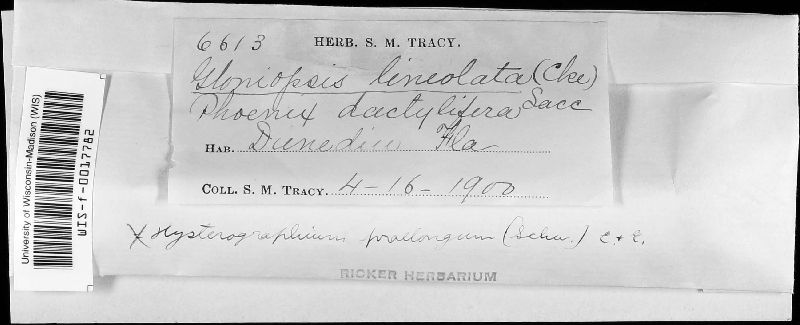 6613 HERB. S. M. TRACY.
Gloniopsis lineolata (Cke)
Phoenix dactylifera Sacc
HAB. Dunedin Fla
COLL. S. M. TRACY. 4-16-1900
University of Wisconsin-Madison (WIS)
WIS-f-0017782
x Hysterographium praelongum (Schw.) E. & E.
RICKER HERBARIUM